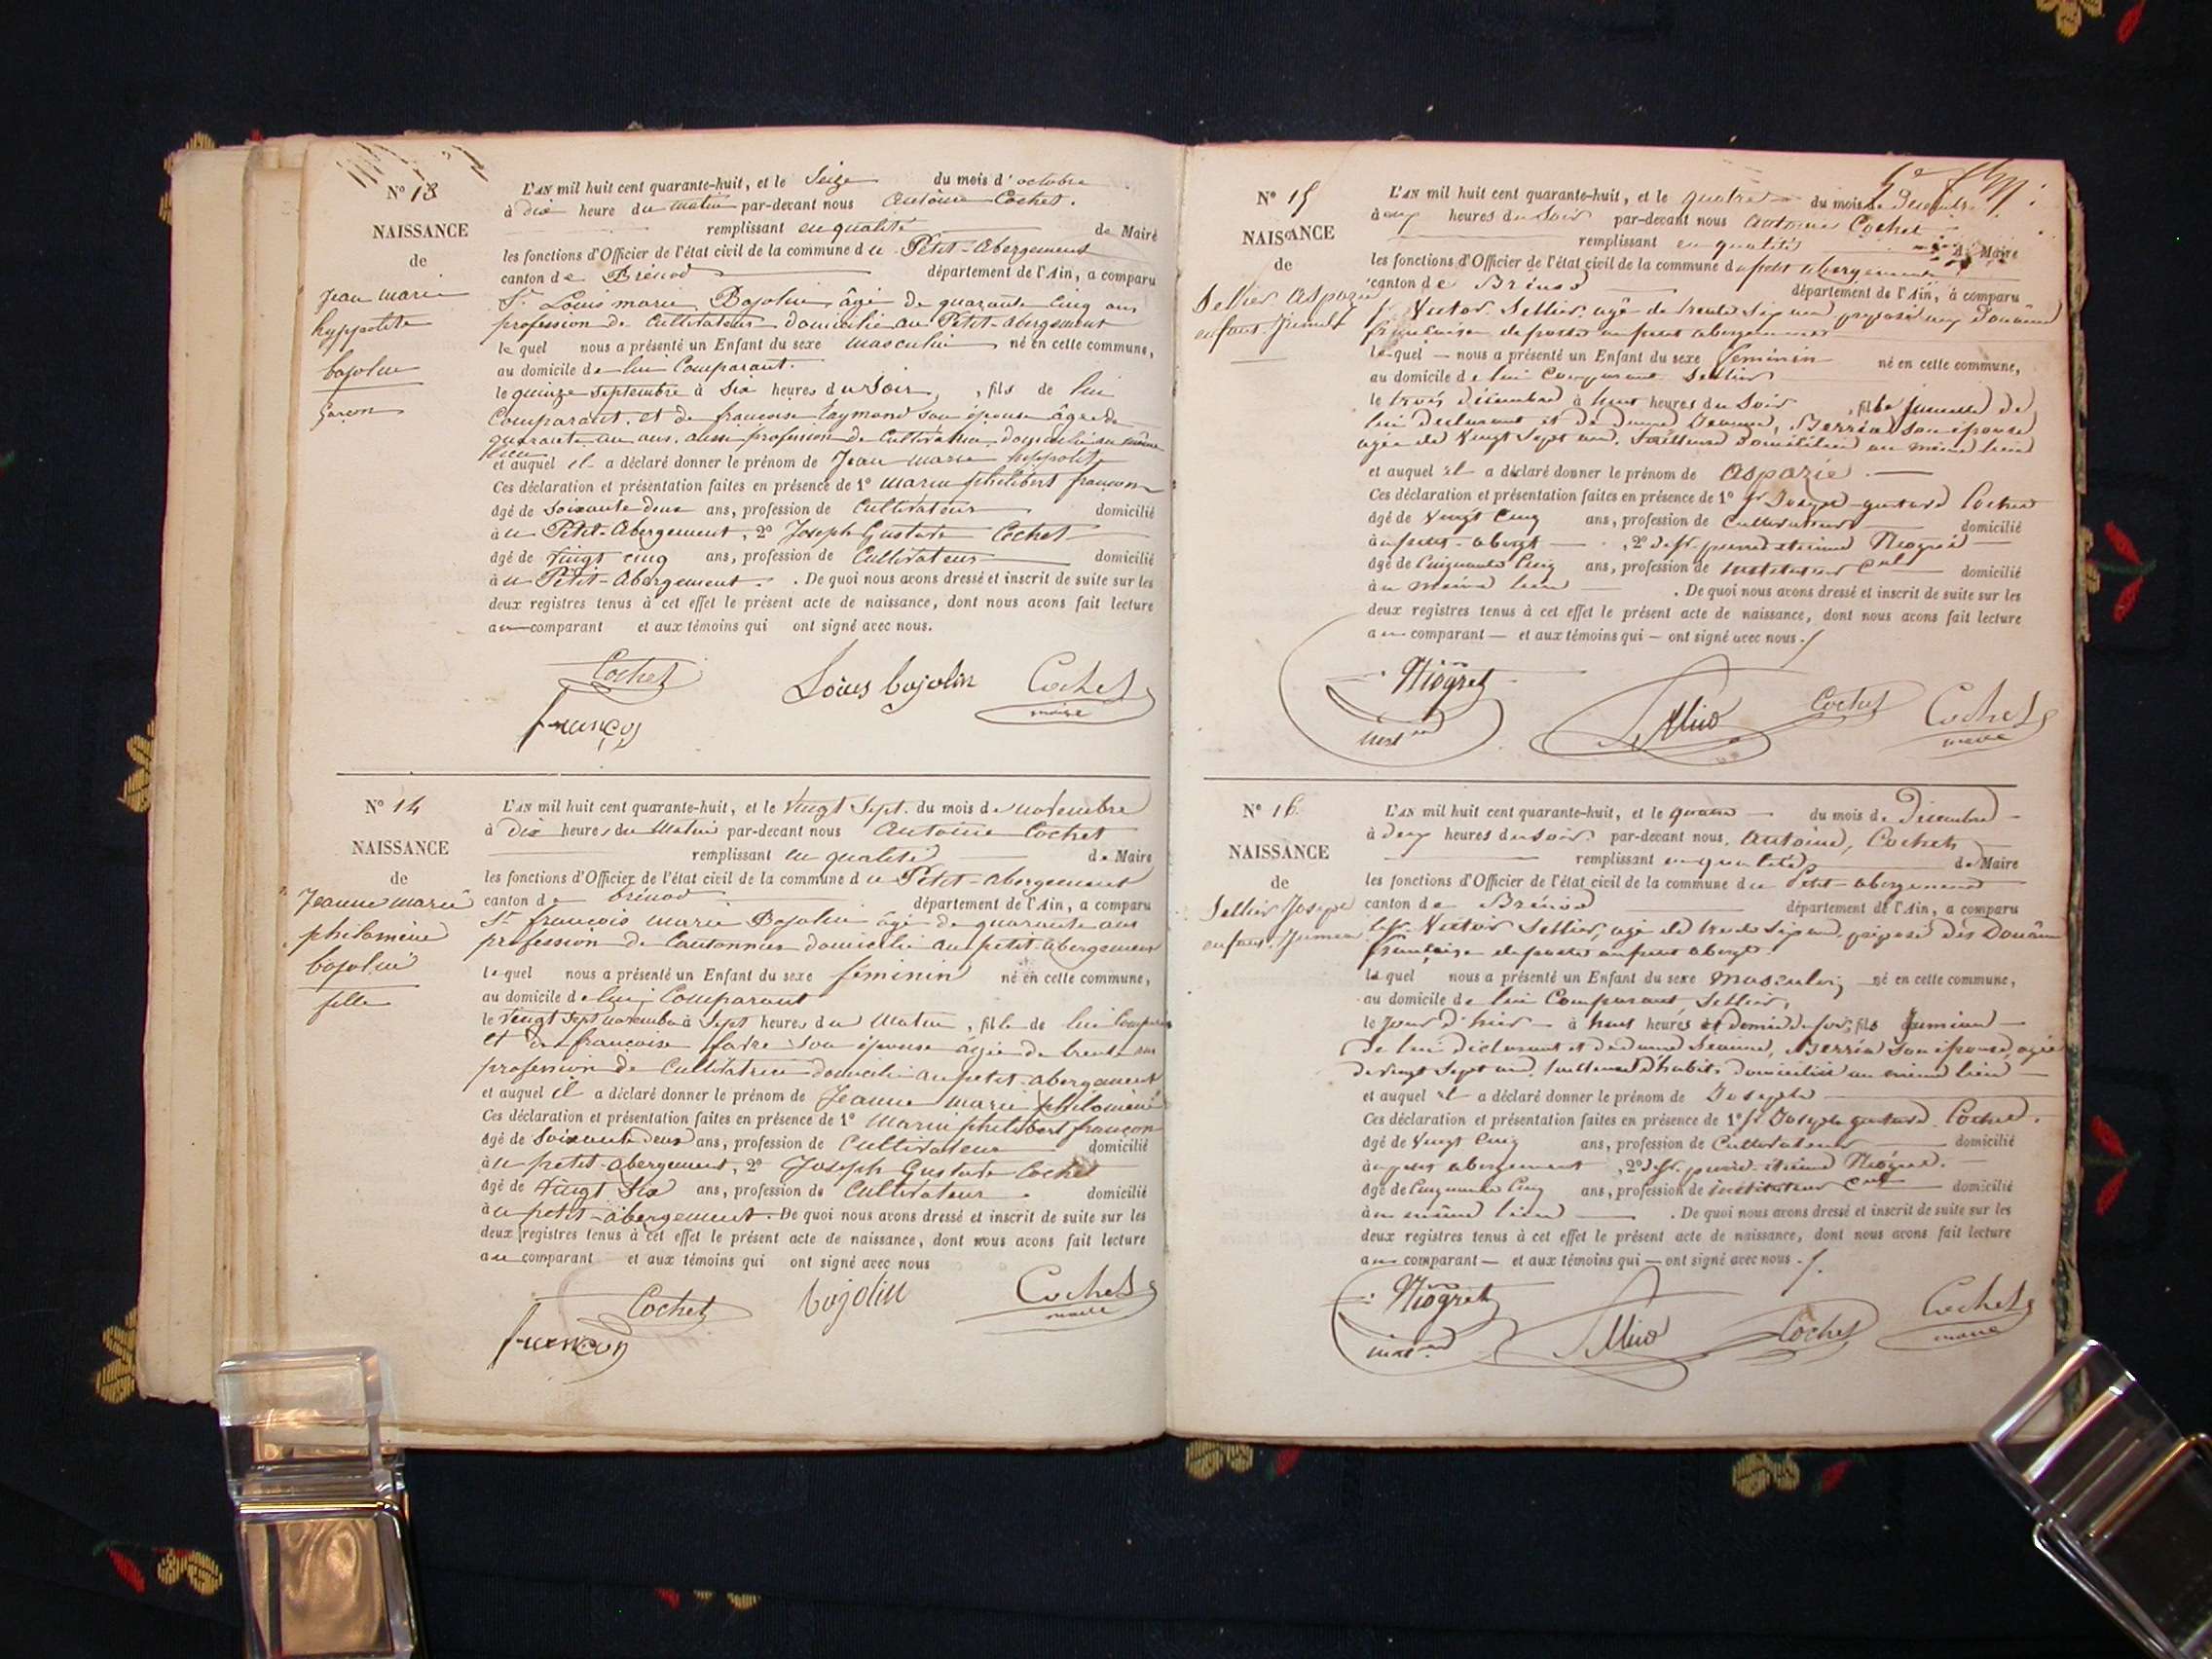 N° 13
NAISSANCE
de
Jean marie
hyppolite
bojolin
Garçon
L'AN mil huit cent quarante-huit, et le Seize du mois d'octobre
à dix heure du matin par-devant nous Antoine Cochet.
remplissant en qualité de Maire
les fonctions d'Officier de l'état civil de la commune du Petit-Abergement
canton de Brénod département de l'Ain, a comparu
Sr Louis marie Bojolin âgé de quarante cinq ans
profession de Cultivateur domicilié au Petit-Abergement
lequel nous a présenté un Enfant du sexe masculin né en cette commune,
au domicile de lui Comparant.
le quinze septembre à Six heures du Soir, fils de lui
Comparant et de françoise Raymond son épouse âgée de
quarante un ans, aussi profession de Cultivatrice domiciliée au même
lieu
et auquel il a déclaré donner le prénom de Jean marie hyppolite
Ces déclaration et présentation faites en présence de 1° Marie philibert françon
âgé de Soixante deux ans, profession de Cultivateur domicilié
au Petit-Abergement, 2° Joseph Gustave Cochet
âgé de Vingt cinq ans, profession de Cultivateur domicilié
au Petit-Abergement. De quoi nous avons dressé et inscrit de suite sur les
deux registres tenus à cet effet le présent acte de naissance, dont nous avons fait lecture
au comparant et aux témoins qui ont signé avec nous.
Cochet Louis bojolin Cochet
maire
françon
N° 14
NAISSANCE
de
Jeanne marie
philomène
bojolin
fille
L'AN mil huit cent quarante-huit, et le Vingt Sept. du mois de novembre
à Dix heures du Matin par-devant nous Antoine Cochet
remplissant en qualité de Maire
les fonctions d'Officier de l'état civil de la commune du Petit-Abergement
canton de brénod département de l'Ain, a comparu
Sr françois marie Bojolin âgé de quarante ans
profession de Cantonnier domicilié au petit-abergement
lequel nous a présenté un Enfant du sexe féminin né en cette commune,
au domicile de lui Comparant
le Vingt sept novembre à Sept heures du Matin, fille de lui Comparant
et de françoise favre son épouse âgée de trente ans
profession de Cultivatrice domicilié au petit-abergement
et auquel il a déclaré donner le prénom de Jeanne marie philomène
Ces déclaration et présentation faites en présence de 1° Marie philibert françon
âgé de Soixante deux ans, profession de Cultivateur domicilié
au petit-abergement, 2° Joseph Gustave Cochet
âgé de Vingt Six ans, profession de Cultivateur domicilié
au petit-abergement. De quoi nous avons dressé et inscrit de suite sur les
deux registres tenus à cet effet le présent acte de naissance, dont nous avons fait lecture
au comparant et aux témoins qui ont signé avec nous
Cochet bojolin Cochet
maire
françon
N° 15
NAISSANCE
de
Sellier Aspazie
enfant Jumelle
L'AN mil huit cent quarante-huit, et le quatre du mois de Décembre
à deux heures du Soir par-devant nous Antoine Cochet
remplissant en qualité de Maire
les fonctions d'Officier de l'état civil de la commune du petit abergement
canton de Brénod département de l'Ain, a comparu
Sr Victor Sellier, agé de trente six ans préposé aux Douanes
françaises de poste au petit abergement
lequel nous a présenté un Enfant du sexe féminin né en cette commune,
au domicile de lui Comparant Sellier
le trois décembre à huit heures du Soir, fille jumelle de
lui déclarant et de dame Jeanne, Berria son épouse
agée de Vingt Sept ans, tailleuse domiciliée au même lieu
et auquel il a déclaré donner le prénom de Aspazie
Ces déclaration et présentation faites en présence de 1° Sr Joseph-gustave Cochet
âgé de Vingt Cinq ans, profession de Cultivateur domicilié
au petit-abergt, 2° de Sr pierre etienne Niogret
âgé de Cinquante Cinq ans, profession de instituteur cal domicilié
au même lieu. De quoi nous avons dressé et inscrit de suite sur les
deux registres tenus à cet effet le présent acte de naissance, dont nous avons fait lecture
au comparant — et aux témoins qui — ont signé avec nous
Niogret Sellier Cochet Cochet
maire
N° 16
NAISSANCE
de
Sellier Joseph
enfant Jumeau
L'AN mil huit cent quarante-huit, et le quatre du mois de Décembre
à deux heures du soir par-devant nous, Antoine, Cochet
remplissant en qualité de Maire
les fonctions d'Officier de l'état civil de la commune du Petit-abergement
canton de Brénod département de l'Ain, a comparu
le Sr Victor Sellier, agé de trente six ans préposé des Douanes
françaises de poste au petit abergt.
lequel nous a présenté un Enfant du sexe masculin né en cette commune,
au domicile de lui Comparant, Sellier,
le Jour d'hier à huit heures et demie du soir, fils jumeau
de lui déclarant et de dame Jeanne, Berria son épouse, agée
de vingt Sept ans, tailleuse d'habits domiciliée au même lieu
et auquel il a déclaré donner le prénom de Joseph
Ces déclaration et présentation faites en présence de 1° Sr Joseph gustave Cochet.
âgé de Vingt Cinq ans, profession de Cultivateur domicilié
au petit abergement, 2° de Sr. pierre-étienne Niogret.
âgé de Cinquante Cinq ans, profession de instituteur cal domicilié
au même lieu. De quoi nous avons dressé et inscrit de suite sur les
deux registres tenus à cet effet le présent acte de naissance, dont nous avons fait lecture
au comparant — et aux témoins qui — ont signé avec nous.
Niogret Sellier Cochet Cochet
maire